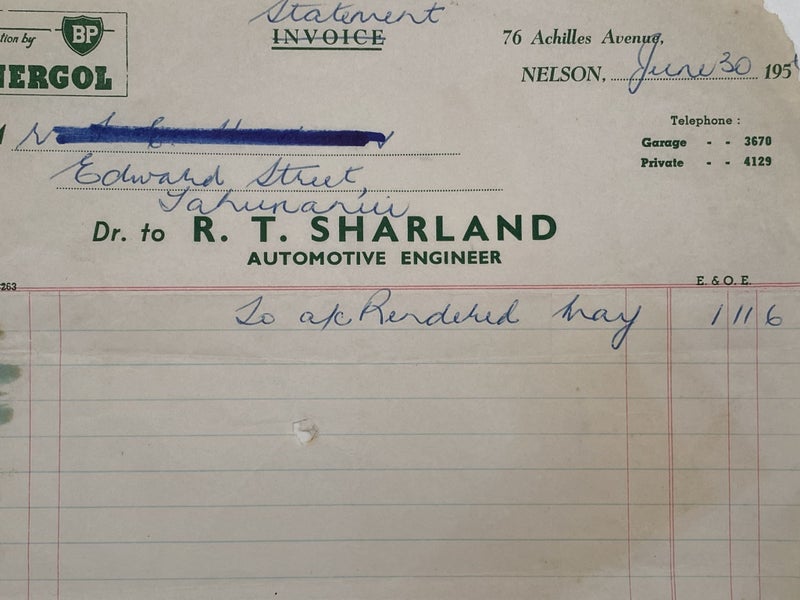 Statement
INVOICE
tion by
BP
NERGOL
76 Achilles Avenue,
NELSON, June 30 195
Telephone :
Garage - - 3670
Private - - 4129
Edward Street,
Tahunanui
Dr. to R. T. SHARLAND
AUTOMOTIVE ENGINEER
263
E. & O. E.
To a/c Rendered May 1 11 6